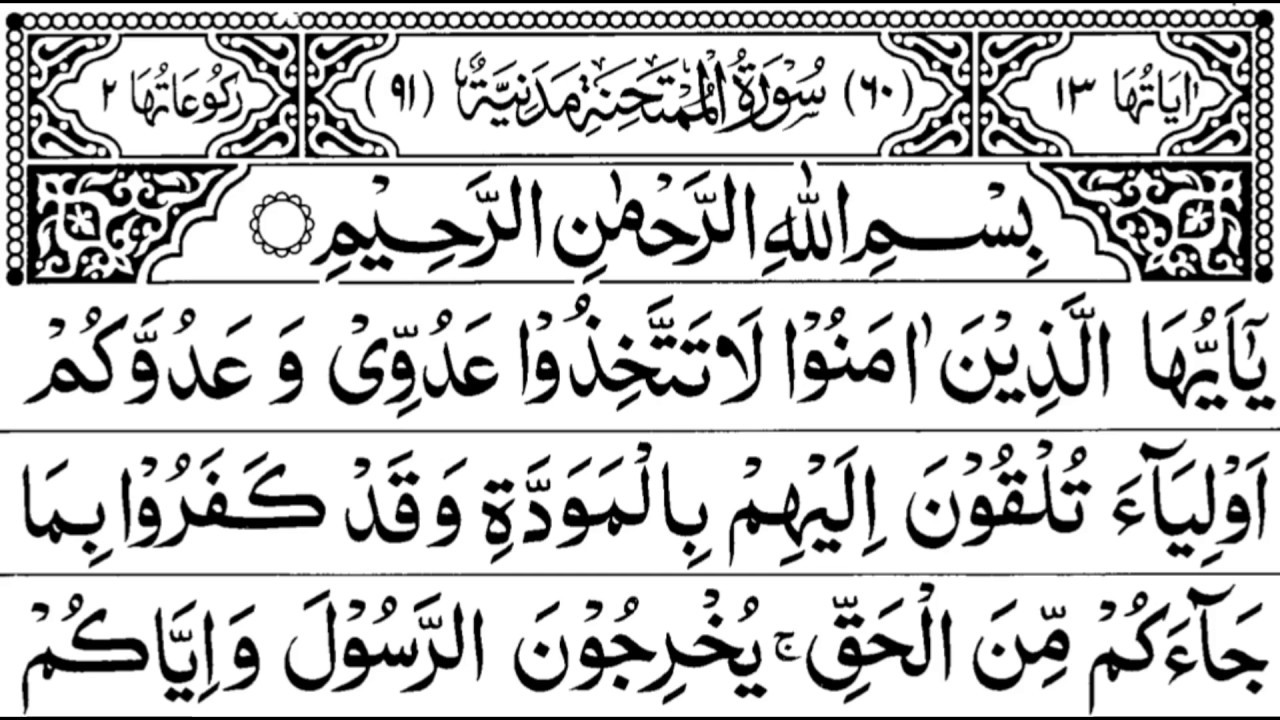 اٰيَاتُهَا ١٣ (٦٠) سُوْرَةُ الْمُمْتَحِنَةِ مَدَنِيَّةٌ (٩١) رَكُوْعَاتُهَا ٢
بِسْمِ اللّٰهِ الرَّحْمٰنِ الرَّحِيْمِ
يٰۤاَيُّهَا الَّذِيْنَ اٰمَنُوْا لَا تَتَّخِذُوْا عَدُوِّيْ وَ عَدُوَّكُمْ
اَوْلِيَآءَ تُلْقُوْنَ اِلَيْهِمْ بِالْمَوَدَّةِ وَ قَدْ كَفَرُوْا بِمَا
جَآءَكُمْ مِّنَ الْحَقِّ ۚ يُخْرِجُوْنَ الرَّسُوْلَ وَ اِيَّاكُمْ